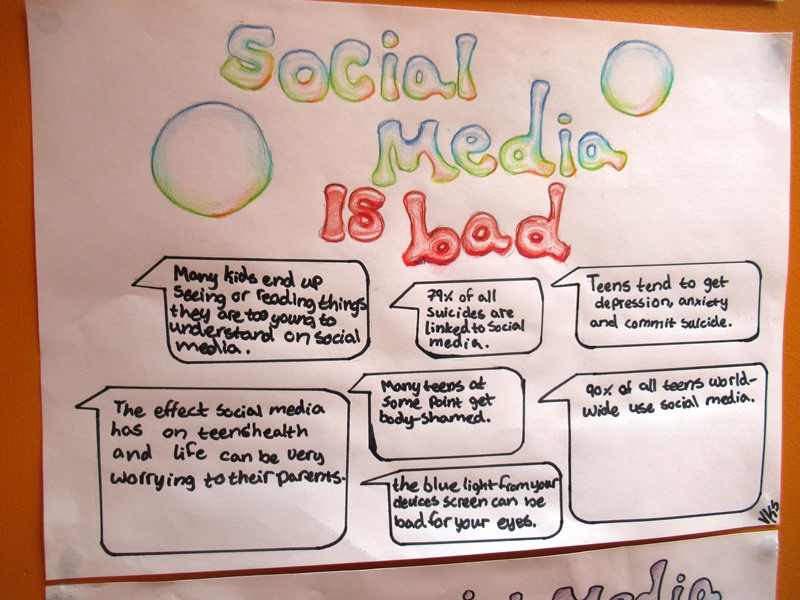 Social
Media
Is bad
Many kids end up
seeing or reading things
they are too young to
understand on social
media.
79% of all
suicides are
linked to social
media.
Teens tend to get
depression, anxiety
and commit suicide.
The effect social media
has on teens' health
and life can be very
worrying to their parents.
Many teens at
some point get
body-shamed.
90% of all teens world-
wide use social media.
the blue light from your
devices screen can be
bad for your eyes.
Media